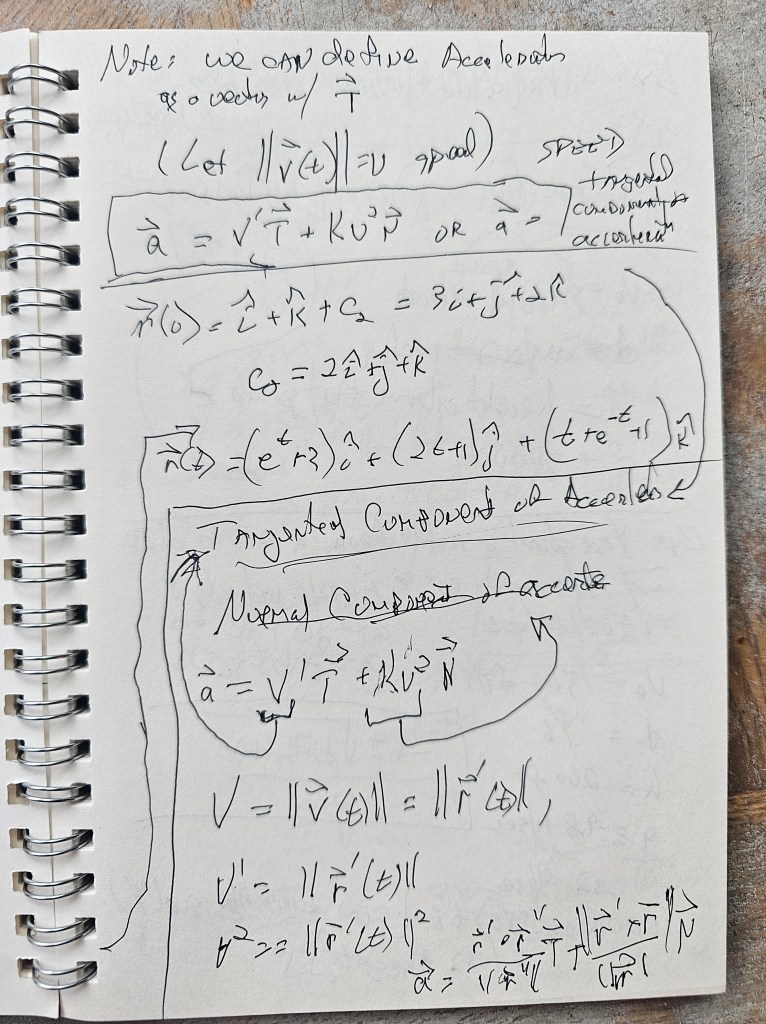 Note: we can define Acceleration
as a vector w/ T⃗
(Let ||v⃗(t)|| = v speed) SPEED
a⃗ = v'T⃗ + Kv²N⃗ OR a⃗ = tangential component of acceleration
r⃗(0) = î + k̂ + C₂ = 3î + ĵ + 2k̂
C₂ = 2î + ĵ + k̂
r⃗(t) = (e^t + 2)î + (2t+1)ĵ + (t + e^-t + 1)k̂
Tangential Component of Acceleration
Normal Component of
a⃗ = v'T⃗ + Kv²N⃗
V = ||v⃗(t)|| = ||r⃗'(t)||,
v' = ||r⃗'(t)||
v² == ||r⃗'(t)||²
a⃗ =